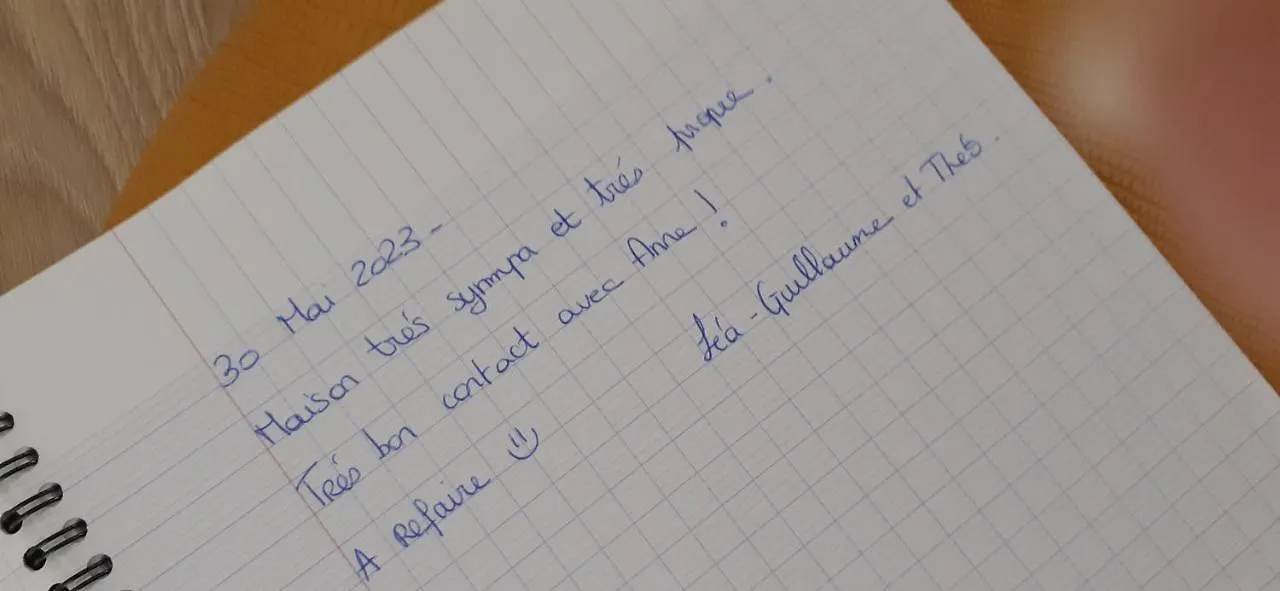 30 Mai 2023-
Maison très sympa et très pique.
Très bon contact avec Anne !
A Refaire =)
Léa - Guillaume et Théo.